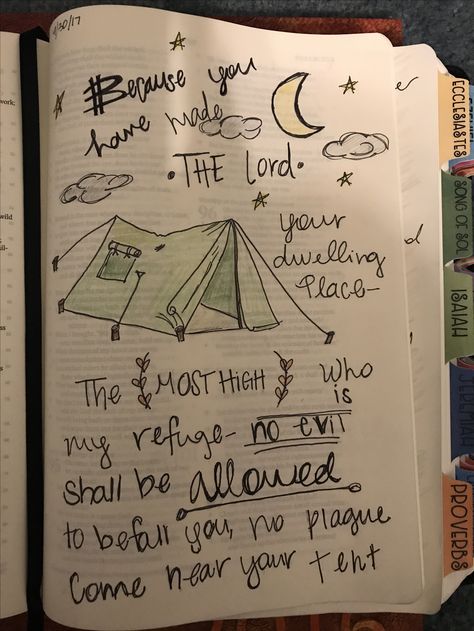 /30/17
#Because you
have made
• THE Lord •
your
dwelling
Place-
The MOST HIGH Who
is
my refuge- no evil
shall be allowed
to befall you, no plague
come near your tent
ECCLESIASTES
SONG OF SOL
ISAIAH
JEREMIAH
PROVERBS
work:
wild